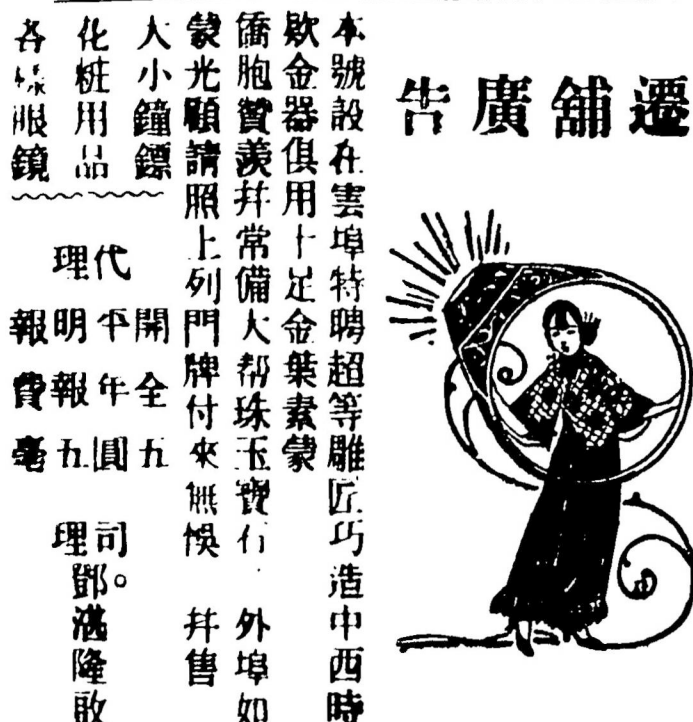 遷舖廣告
本號設在雲埠特聘超等雕匠巧造中西時
欵金器俱用十足金葉素蒙
僑胞贊羨幷常備大帮珠玉寶石.外埠如
蒙光顧請照上列門牌付來無悞 幷售
大小鐘鏢
化粧用品
各樣眼鏡
代理
開平明報
全年報費
五圓五毫。
司理
鄧隆啟